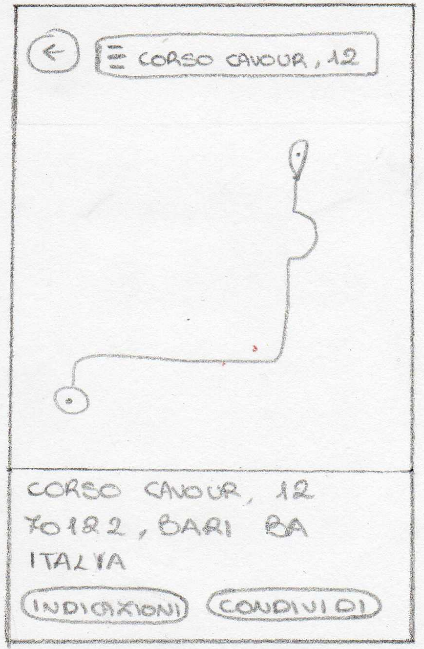 CORSO CAVOUR, 12
CORSO CAVOUR, 12
70122, BARI BA
ITALYA
INDICAZIONI
CONDIVIDI